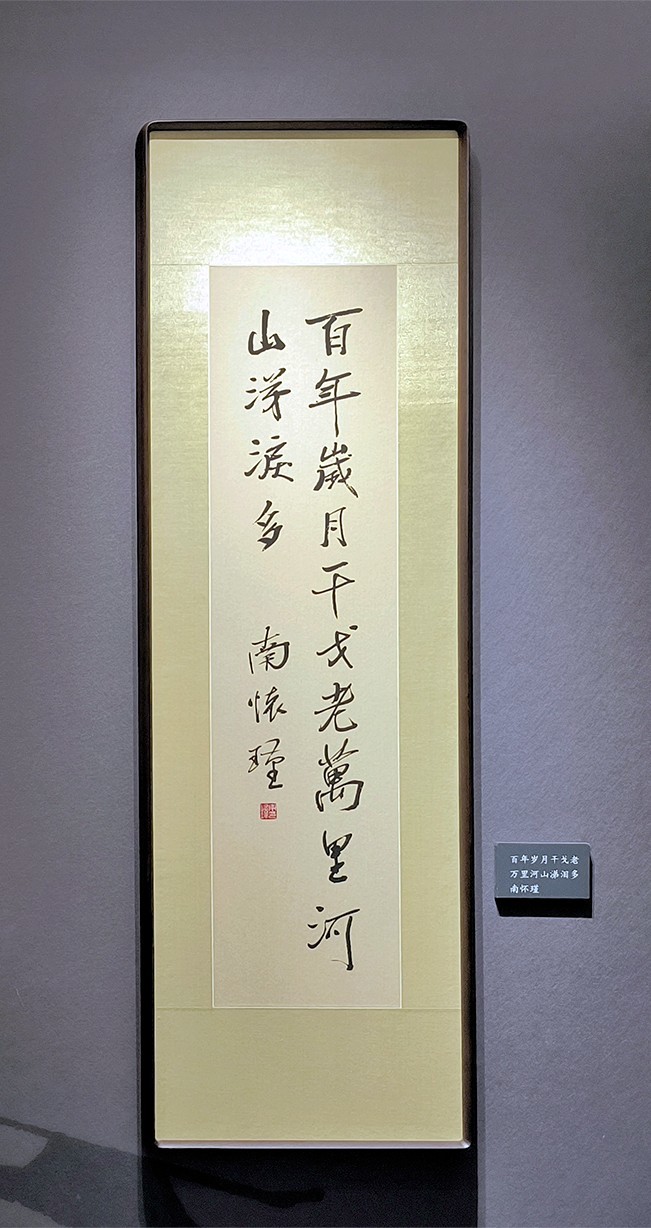 百年歲月干戈老萬里河
山涕淚多
南懷瑾
百年岁月干戈老
万里河山涕泪多
南怀瑾